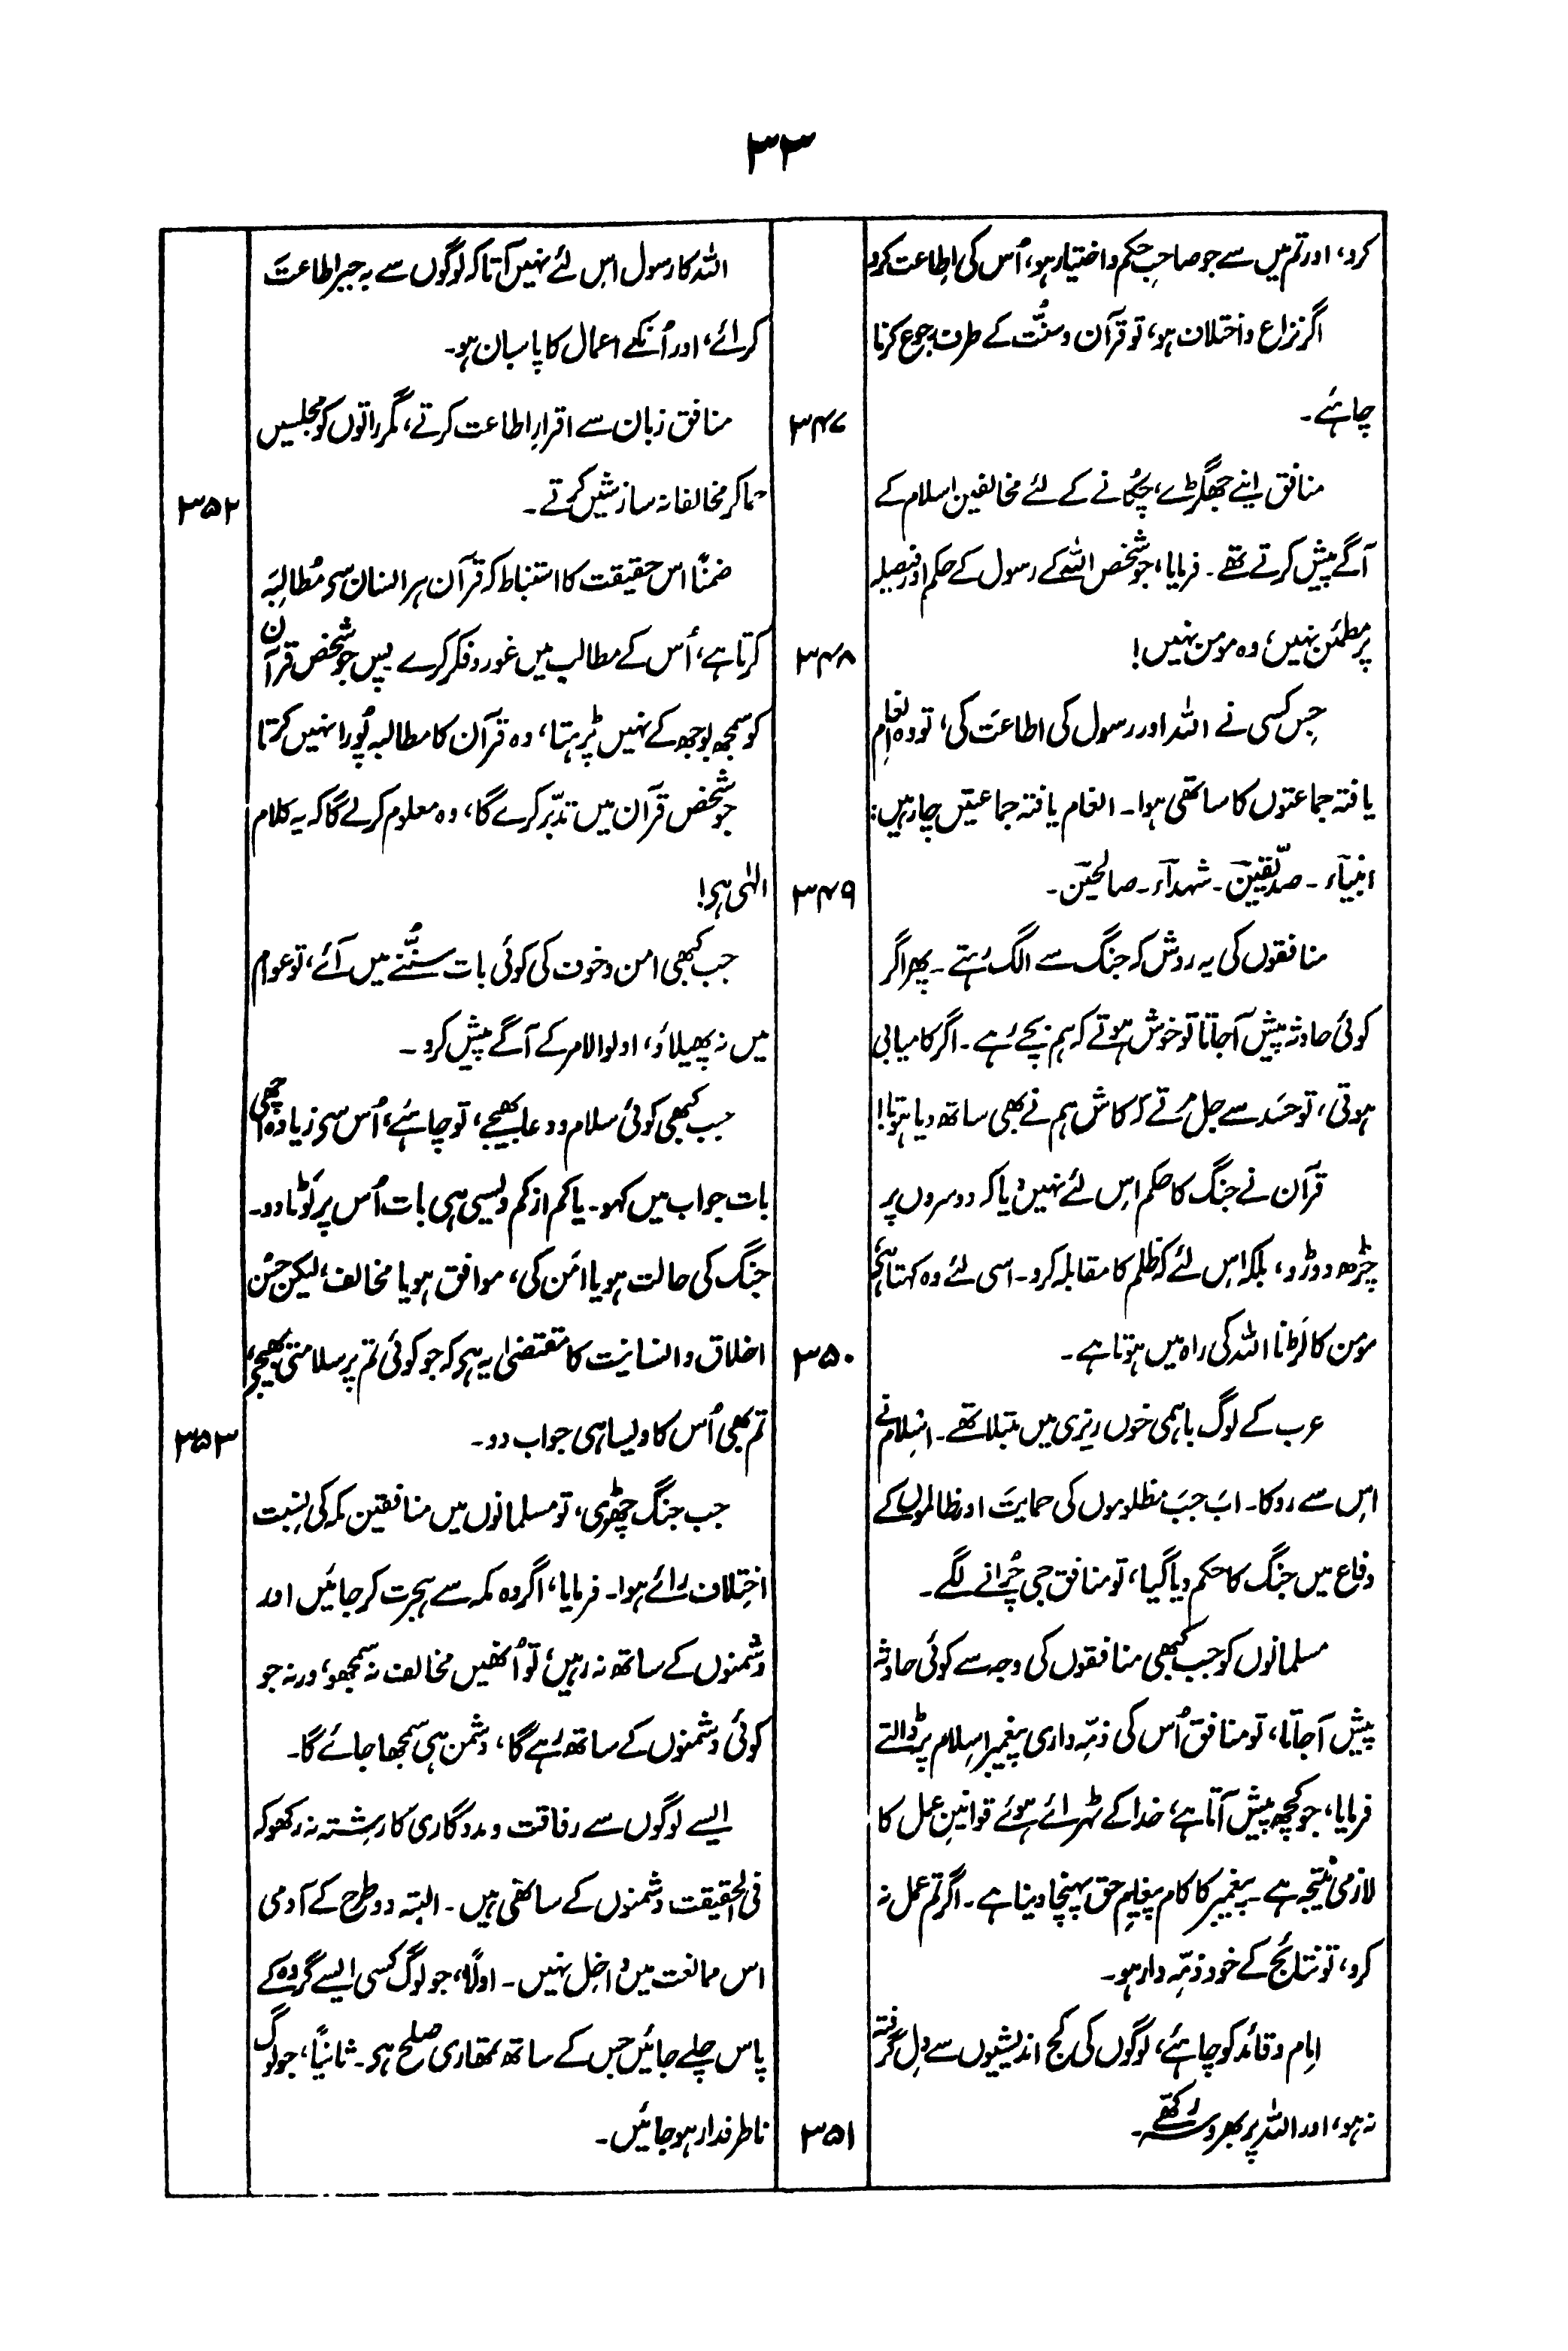 ۳۳
کرو، اور تم میں سے جو صاحبِ حکم و اختیار ہو، اُس کی اطاعت کرو
اگر نزاع و اختلاف ہو، تو قرآن و سنُّت کے طرف رجوع کرنا
چاہئے۔ ۳۴۷
منافق اپنے جھگڑے، چکانے کے لئے مخالفینِ اسلام کے
آگے پیش کرتے تھے۔ فرمایا، جو شخص اللہ کے رسول کے حکم اور فیصلہ
پر مطمئن نہیں، وہ مومن نہیں! ۳۴۸
جس کسی نے اللہ اور رسول کی اطاعت کی، تو وہ انعام
یافتہ جماعتوں کا ساتھی ہوا۔ انعام یافتہ جماعتیں چار ہیں:
انبیآء۔ صدّیقین۔ شہدآء۔ صالحین۔ ۳۴۹
منافقوں کی یہ روش کہ جنگ سے الگ رہتے۔ پھر اگر
کوئی حادثہ پیش آجاتا تو خوش ہوتے کہ ہم بچے رہے۔ اگر کامیابی
ہوتی، تو حسد سے جل مرتے کہ کاش ہم نے بھی ساتھ دیا ہوتا!
قرآن نے جنگ کا حکم اس لئے نہیں دیا کہ دوسروں پر
چڑھ دوڑو، بلکہ اِس لئے کہ ظلم کا مقابلہ کرو۔ اسی لئے وہ کہتا ہے،
مومن کا لڑنا اللہ کی راہ میں ہوتا ہے۔ ۳۵۰
عرب کے لوگ باہمی خوں ریزی میں مبتلا تھے۔ اسلام نے
اس سے روکا۔ اب جب مظلوموں کی حمایت اور ظالموں کے
دفاع میں جنگ کا حکم دیا گیا، تو منافق جی چُرانے لگے۔
مسلمانوں کو جب کبھی منافقوں کی وجہ سے کوئی حادثہ
پیش آجاتا، تو منافق اُس کی ذمّہ داری پیغمبر اسلام پر ڈالتے
فرمایا، جو کچھ پیش آتا ہے، خدا کے ٹھہرائے ہوئے قوانینِ عمل کا
لازمی نتیجہ ہے۔ پیغمبر کا کام پیغامِ حق پہنچا دینا ہے۔ اگر تم عمل نہ
کرو، تو نتائج کے خود ذمّہ دار ہو۔
امام و قائد کو چاہئے، لوگوں کی کج اندیشیوں سے دل گرفتہ
نہ ہو، اور اللہ پر بھروسہ رکھے۔ ۳۵۱
اللہ کا رسول اس لئے نہیں آتا کہ لوگوں سے بہ جبر اطاعت
کرائے، اور اُنکے اعمال کا پاسبان ہو۔
منافق زبان سے اقرارِ اطاعت کرتے، مگر راتوں کو مجلسیں
جما کر مخالفانہ سازشیں کرتے۔ ۳۵۲
ضمنًا اس حقیقت کا استنباط کہ قرآن ہر انسان سے مُطالبَہ
کرتا ہے، اُس کے مطالب میں غور و فکر کرے پس جو شخص قرآن
کو سمجھ بوجھ کے نہیں پڑہتا، وہ قرآن کا مطالبہ پُورا نہیں کرتا
جو شخص قرآن میں تدبّر کرے گا، وہ معلوم کرلے گا کہ یہ کلام
الٰہی ہے!
جب کبھی امن و خوف کی کوئی بات سنُنے میں آئے، تو عوام
میں نہ پھیلاؤ، اولوالامر کے آگے پیش کرو۔
جب کبھی کوئی سلام و دعا بھیجے، تو چاہئے، اُس سے زیادہ اچھی
بات جواب میں کہو۔ یا کم از کم ویسی ہی بات اُس پر لَوٹا دو۔
جنگ کی حالت ہو یا امَن کی، موافق ہو یا مخالف، لیکن حسُنِ
اخلاق و انسانیت کا مقتضیٰ یہ ہے کہ جو کوئی تم پر سلامتی بھیجے،
تم بھی اُس کا ویسا ہی جواب دو۔ ۳۵۳
جب جنگ چھڑی، تو مسلمانوں میں منافقین مکہ کی نسبت
اختلاف رائے ہوا۔ فرمایا، اگر وہ مکہ سے ہجرت کر جائیں اور
دشمنوں کے ساتھ نہ رہیں، تو اُنھیں مخالف نہ سمجھو، ورنہ جو
کوئی دشمنوں کے ساتھ رہے گا، دشمن ہی سمجھا جائے گا۔
ایسے لوگوں سے رفاقت و مددگاری کا رشتہ نہ رکھو کہ
فی الحقیقت دشمنوں کے ساتھی ہیں۔ البتہ دو طرح کے آدمی
اس ممانعت میں داخل نہیں۔ اولًا، جو لوگ کسی ایسے گروہ کے
پاس چلے جائیں جس کے ساتھ تمھاری صلح ہو۔ ثانیًا، جو لوگ
ناطرفدار ہو جائیں۔